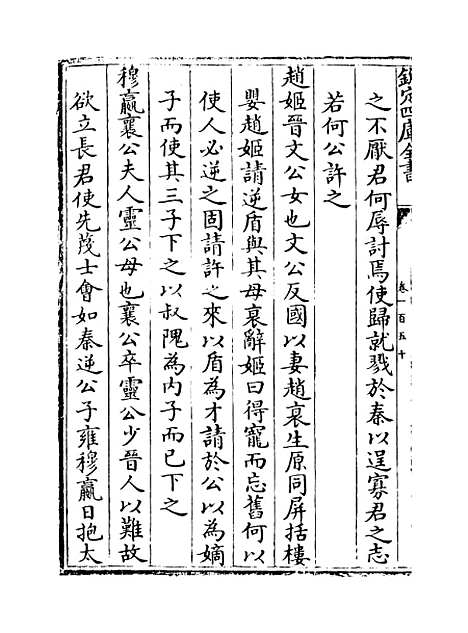 欽定四庫全書
卷一百五十
之不厭君何辱討焉使歸就戮於秦以逞寡君之志
若何公許之
趙姬晉文公女也文公反國以妻趙衰生原同屏括樓
嬰趙姬請逆盾與其母衰辭姬曰得寵而忘舊何以
使人必逆之固請許之來以盾為才請於公以為嫡
子而使其三子下之以叔隗為内子而已下之
穆嬴襄公夫人靈公母也襄公卒靈公少晉人以難故
欲立長君使先蔑士會如秦逆公子雍穆嬴日抱太